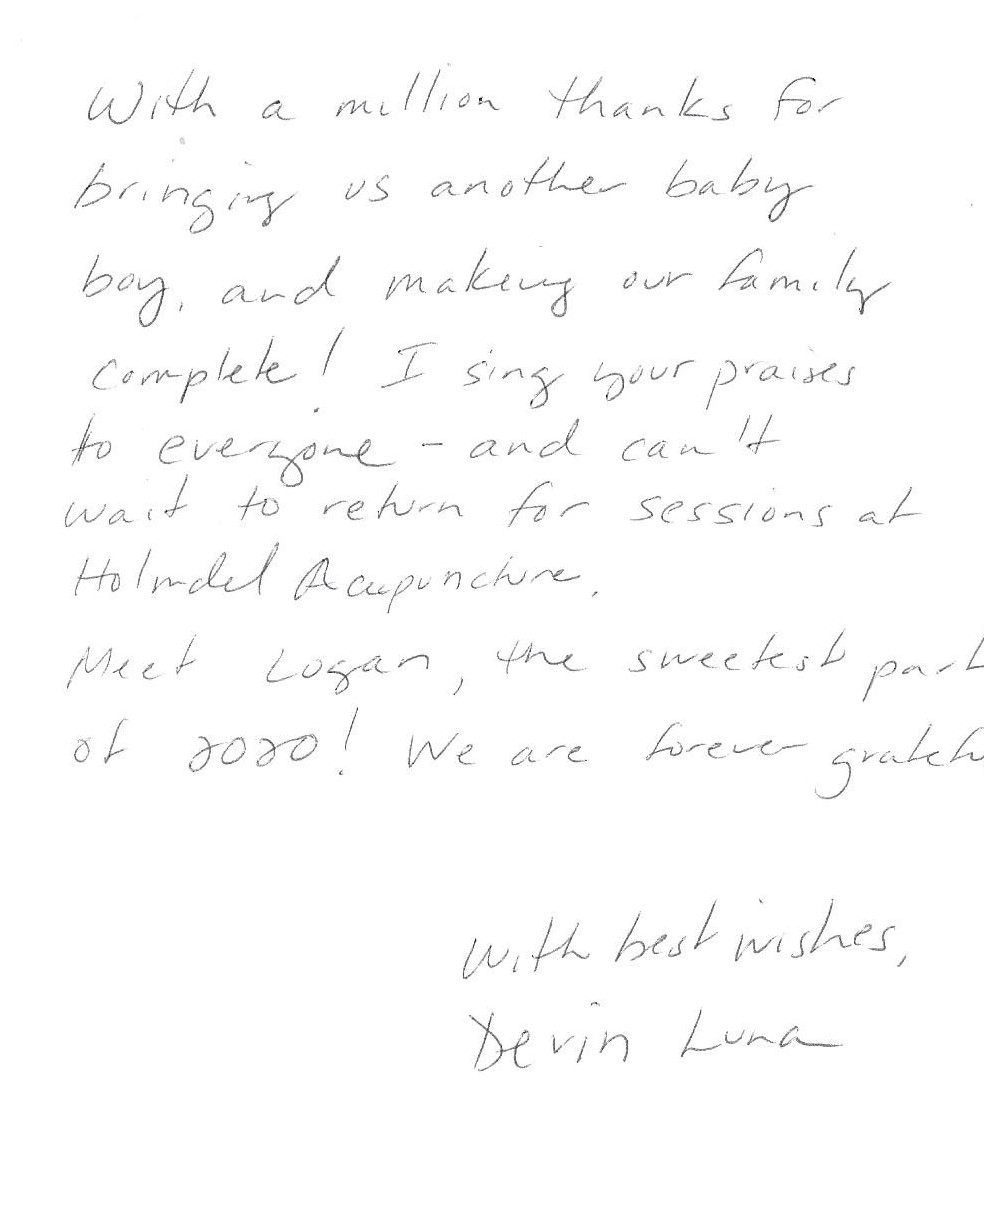 With a million thanks for
bringing us another baby
boy, and making our family
complete! I sing your praises
to everyone - and can't
wait to return for sessions at
Holmdel Acupuncture.
Meet Logan, the sweetest part
of 2020! We are forever gratefu
With best wishes,
Devin Luna